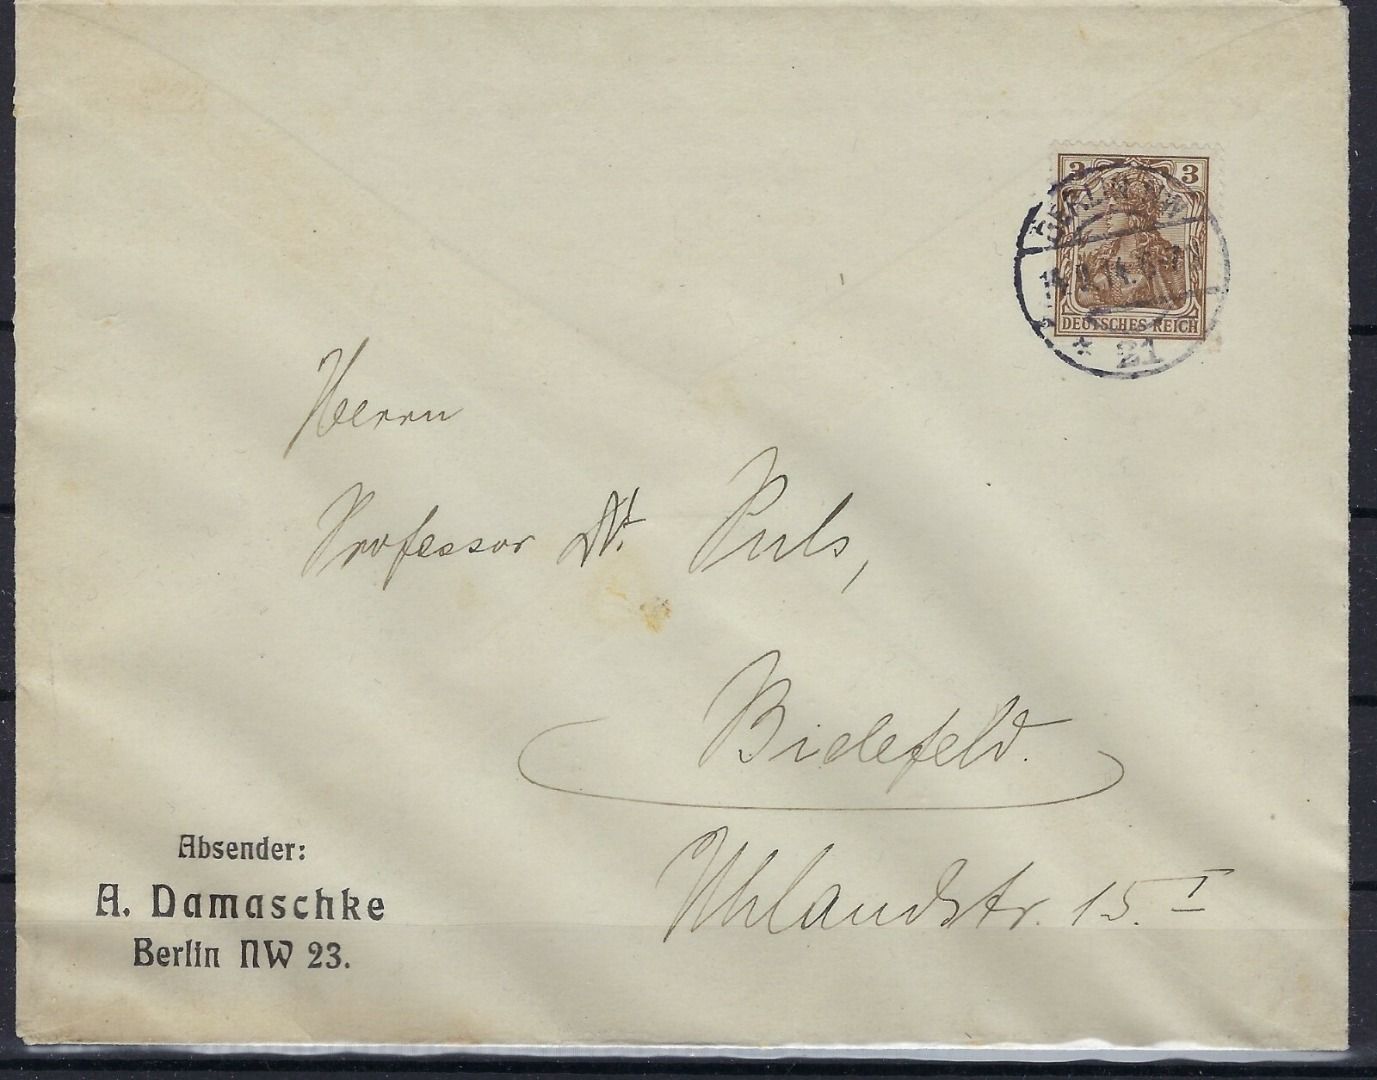 3 3
BERLIN NW
DEUTSCHES REICH
* 21
Herrn
Professor Dr. Puls,
Bielefeld.
Uhlandstr. 15. I
Absender:
A. Damaschke
Berlin NW 23.